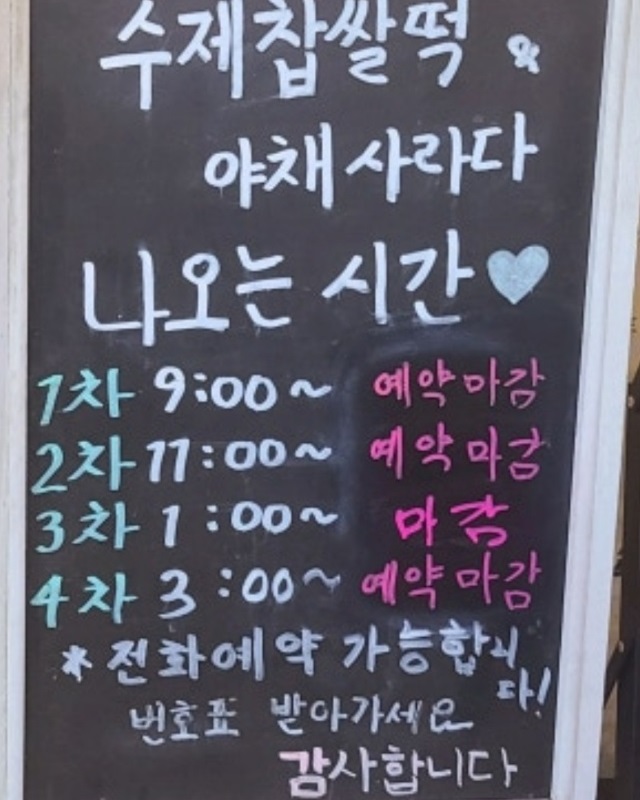 수제찹쌀떡 &
야채 사라다
나오는 시간♥
1차 9:00~ 예약마감
2차 11:00~ 예약마감
3차 1:00~ 마감
4차 3:00~ 예약마감
* 전화예약 가능합니
다!
번호표 받아가세요
감사합니다